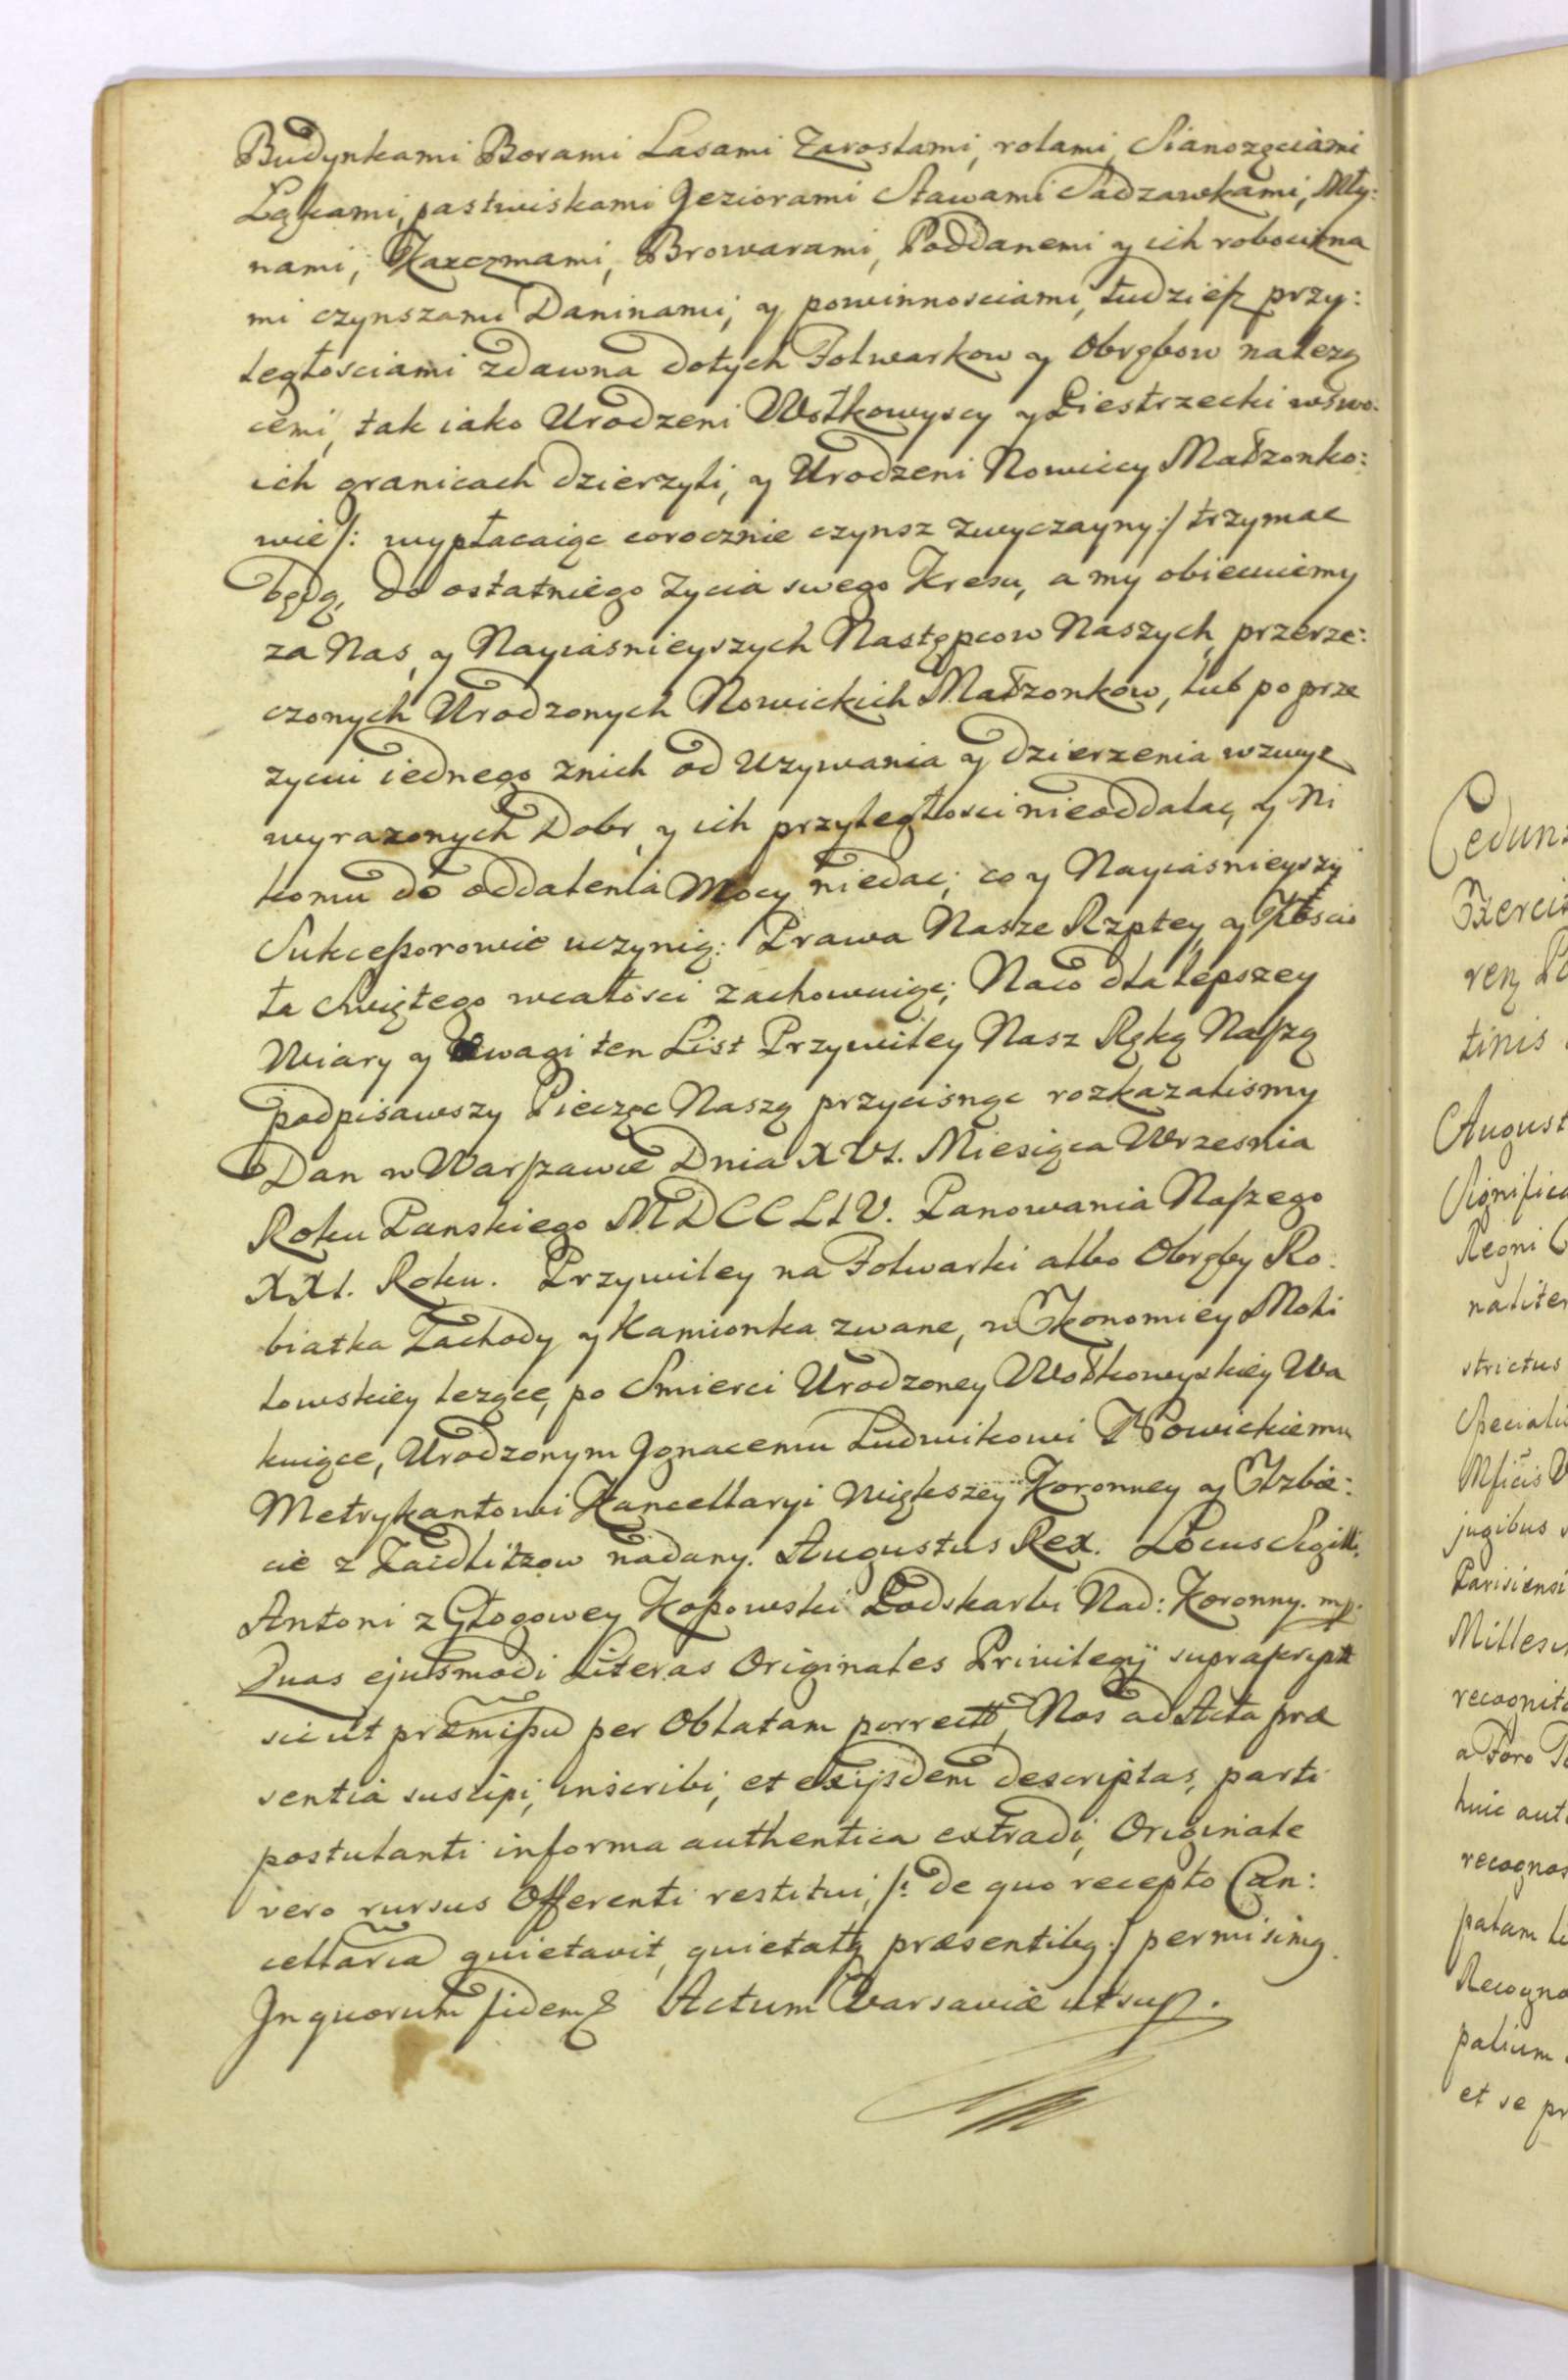 Budynkami Borami Lasami Zaroslami, rolami, Sianozęciami
Łąkami, pastwiskami Jeziorami Stawami Sadzawkami, Mły:
nami, Karczmami, Browarami, Poddanemi y ich robocizna
mi czynszami Daninami, y powinnosciami, tudzieſz przy:
ległosciami zdawna dotych Folwarkow y Obrębow należą
cemi, tak iako Urodzeni Wołkowyscy y Piestrzecki wswo.
ich granicach dzierzyli, y Urodzeni Nowiccy Małzonko:
wie /: wypłacaiąc corocznie czynsz zwyczayny :/ trzymac
będą, do ostatniego Zycia swego Kresu, a my obiecuiemy
za Nas, y Nayiasnieyszych Następcow Naszych, przerze:
czonych Urodzonych Nowickich Małzonkow, lub po prze
zyciu iednego znich od Uzywania y dzierzenia wzwyz
wyrazonych Dobr, y ich przyległosci nieoddalac, y Ni
komu do oddalenia Mocy niedac; co y Nayiasnieyszy
Sukceſsorowie uczynią: Prawa Nasze Rzptey, y Kościo
ła Swiętego wcałosci zachowuiąc; Naco dla lepszey
Wiary y Uwagi ten List Przywiley Nasz Ręką Naſzą
podpisawszy Pieczęc Naszą przycisnąc rozkazalismy
Dan w Warſzawie Dnia XVI. Miesiąca Wrzesnia
Roku Panskiego MDCCLIV. Panowania Naſzego
XXI. Roku. Przywiley na Folwarki albo Obręby Ro:
biatka Zachody y Kamionka zwane, w Ekonomiey Mohi
lowskiey lezące, po Smierci Urodzoney Wołkowyskiey Wa
kuiące, Urodzonym Jgnacemu Ludwikowi Nowickiemu
Metrykantowi Kancellaryi Większey Koronney y Elzbie:
cie z Zaidlitzow nadany. Augustus Rex. Locus Sigilli.
Antoni z Głogowey Koſsowski Podskarbi Nad: Koronny. mp.
Quas ejusmodi Literas Originales Privilegij suprascript
sicut præmiſsu per Oblatam porrect, Nos ad Acta præ
sentia suscipi, inscribi, et exijsdem descriptas, parti
postulanti informa authentica extradi, Originale
vero rursus Offerenti restitui, /: de quo recepto Can:
cellaria quietavit, quietatq præsentibq :/ permisimq.
Jn quorum fidem & Actum Varsaviæ ut sup.
Cedun
Exerci
renz
tinis
August
Significa
Regni
naliter
strictus
Speciali
Mficis
jugibus
Parisiensi
Milles
recognit
a Foro
huic aut
recognos
palam
Recogno
palium
et se pr